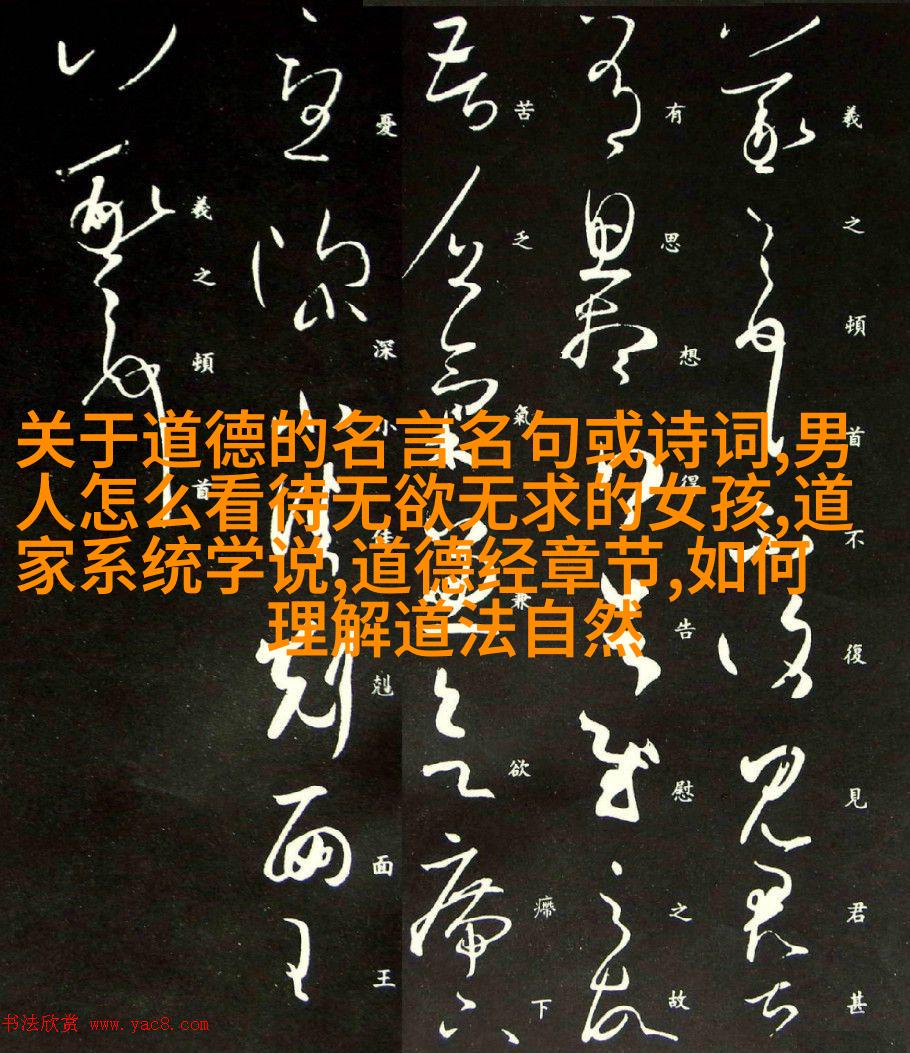 关于道德的名言名句或诗词,男
人怎么看待无欲无求的女孩,道
家系统学说,道德经章节,如何
理解道法自然
羲之頓首不復見君甚
有思想得告慰之故
苦乏氣兼欲㿃下
憂深小佳剋面王
羲之頓首
书法欣赏 www.yac8.com